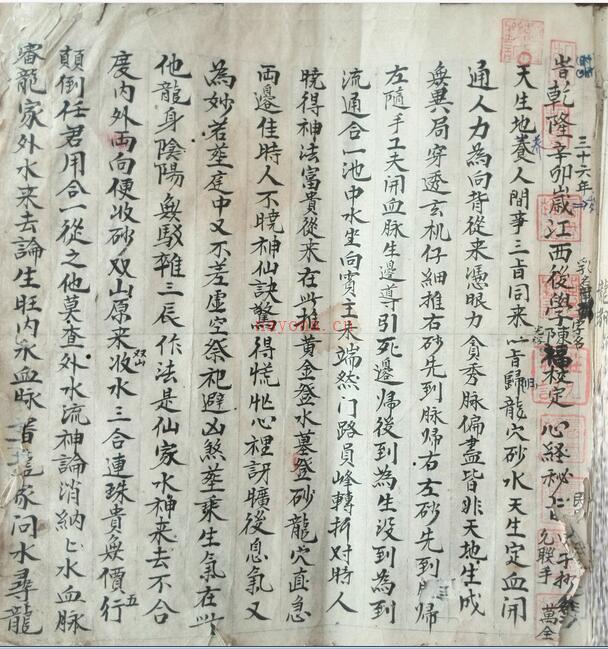 三十六年
旹乾隆辛卯歲江西後學陳福校定 心經秘
天生地養人間事三旨同來一旨歸龍穴砂水天生定血開
通人力為向背從來憑眼力貪秀脉偏盡皆非天地生成
無異局穿透玄机仔細推右砂先到脉歸右左砂先到脉歸
左隨手工夫開血脉生邊導引死邊歸後到為生没到為到
流通合一池中水坐向賓主来端然门路員峰轉折对時人
曉得神法富貴從来在此推黄金登水墓登砂龍穴直急
两邊佳時人不曉神仙訣驚得慌忙心裡訝曠後息氣又
為妙若塟庭中又不差虚空祭祀避凶煞塟乘生氣在此
他龍身陰陽無駁雜三辰作法是仙家水神来去不合
度内外両向便收砂双山原来收水三合連珠貴無價行
双山
五
顛倒任君用合一從之他莫查外水流神論消納上水血脉
龍家外水来去論生旺内水血脉 家问水尋龍
允联手
萬全